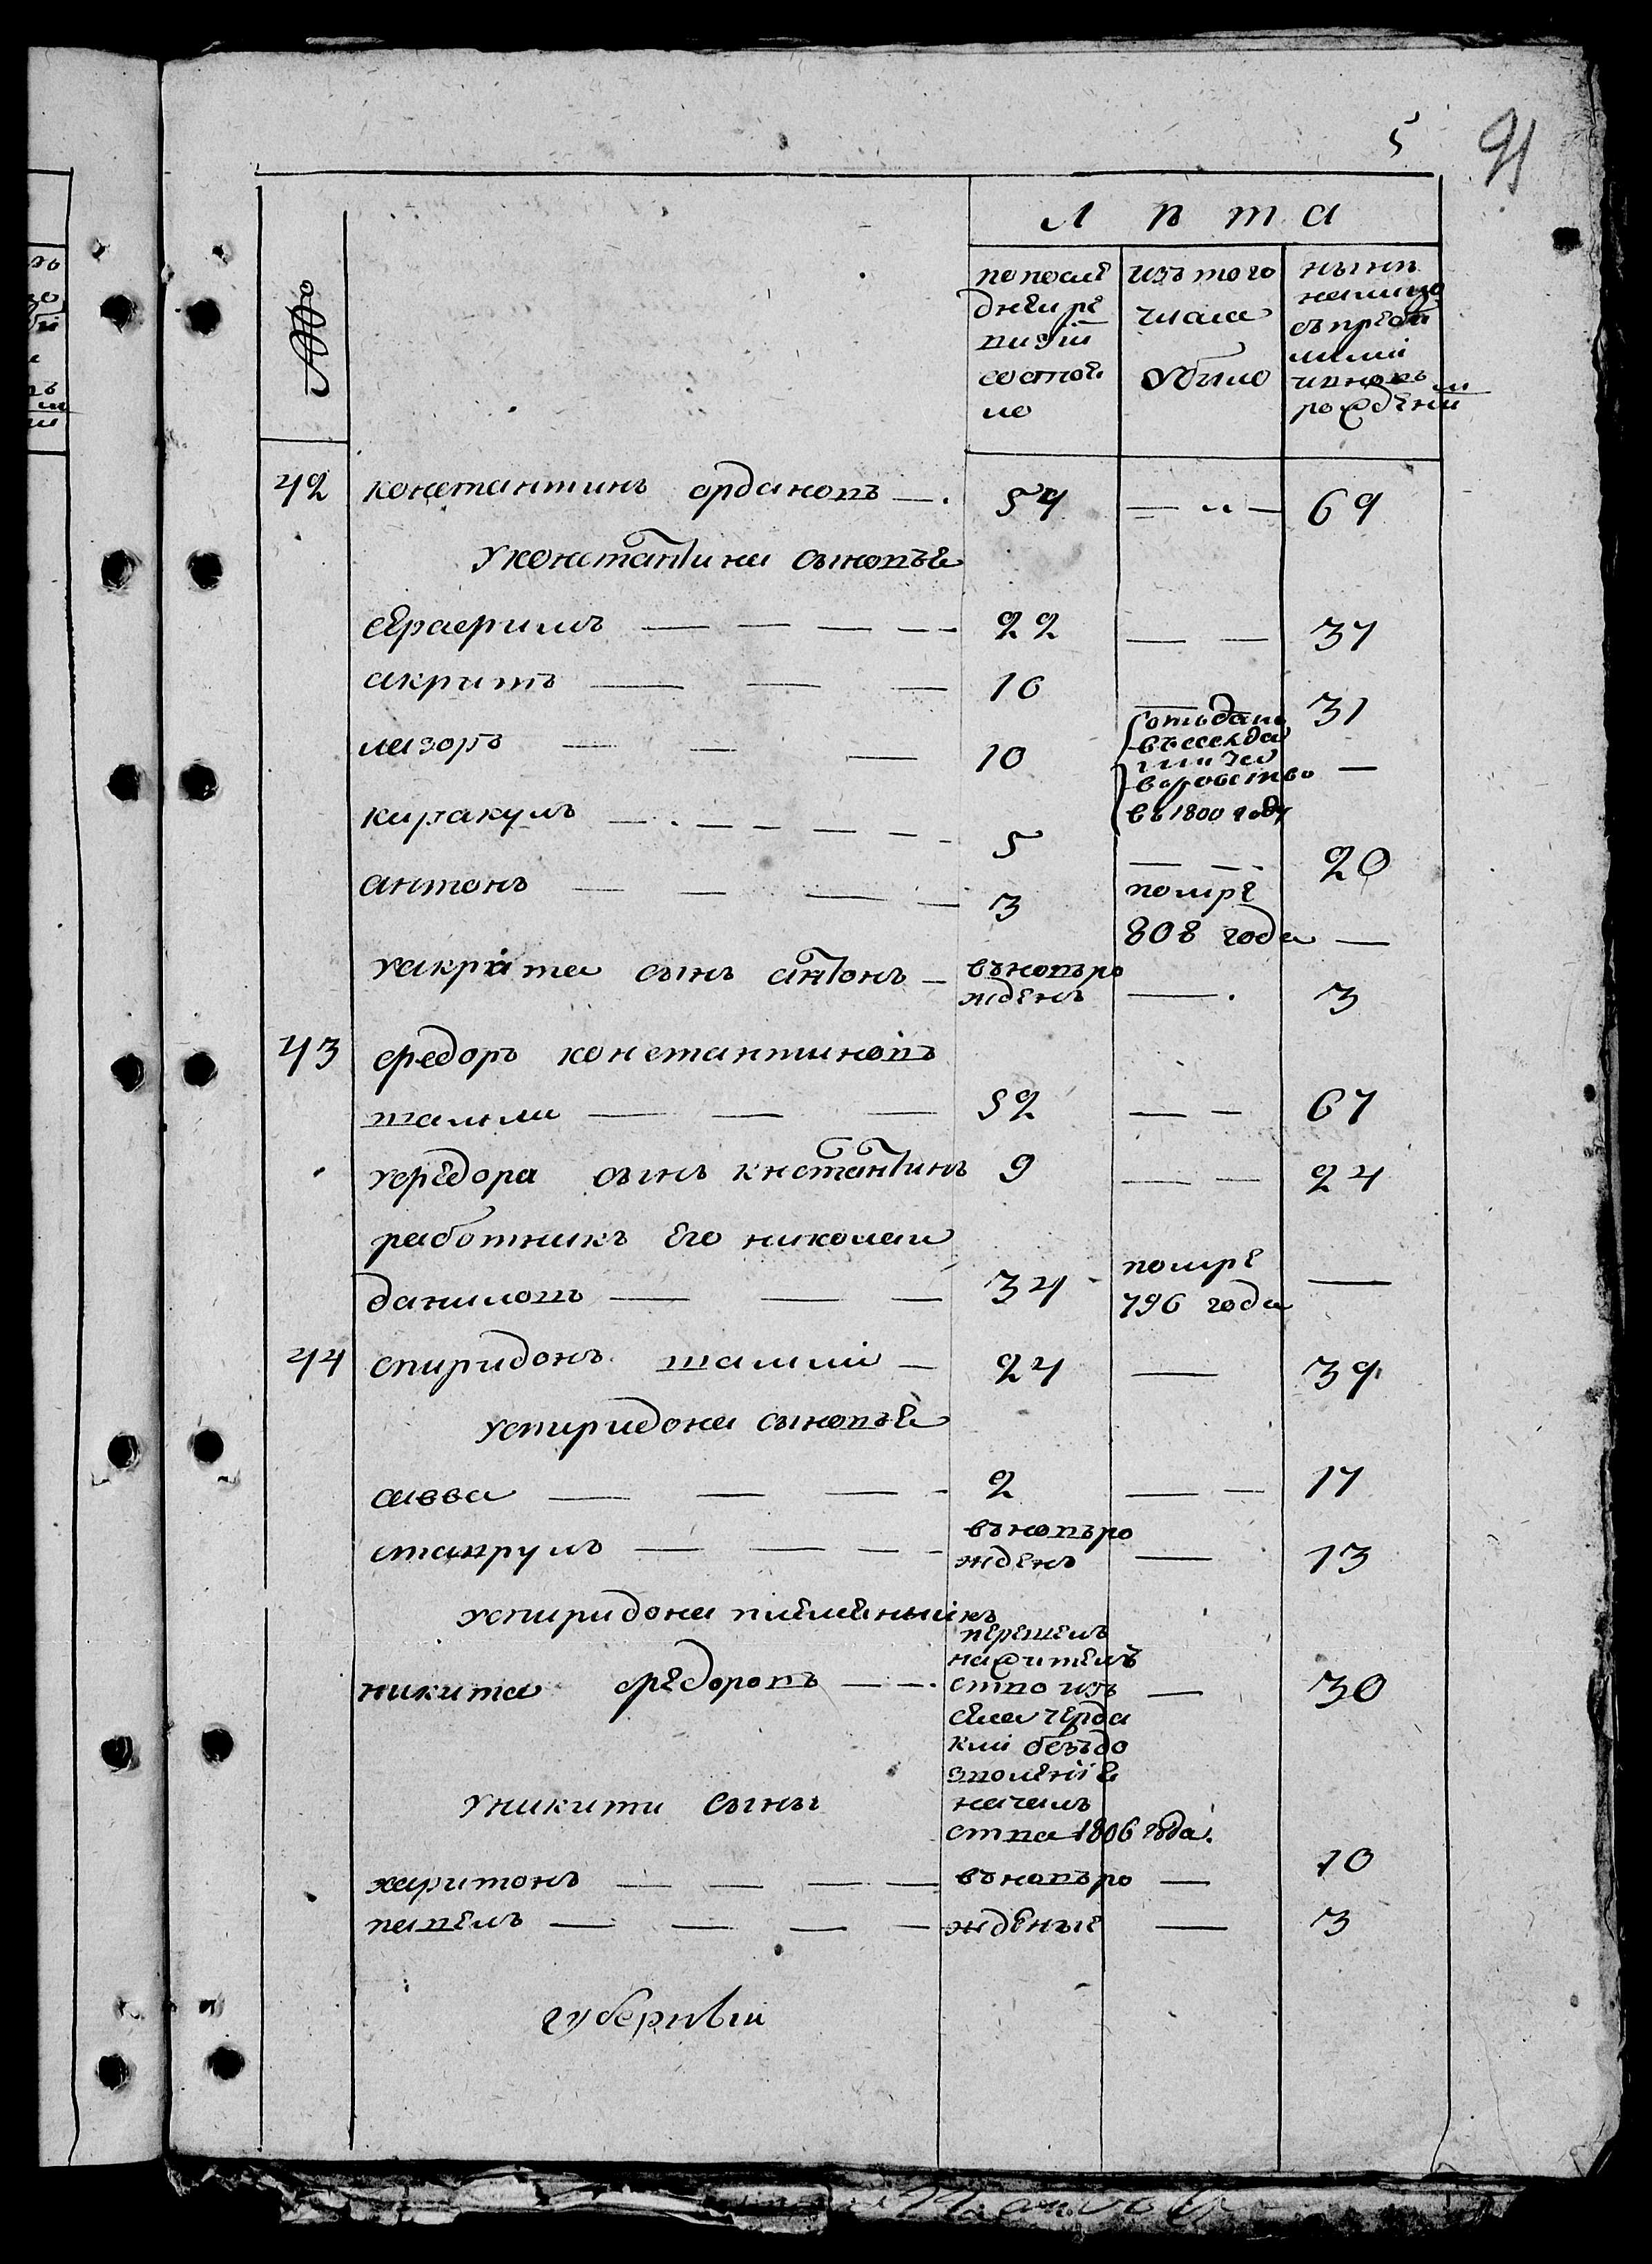 5 91
Лѣта
№
попосле
днеи ре
визїи
состоя
ло
изътого
числа
убыло
нынѣ
налицо
съпребы
лыми
ивновь
рожденыи
42 константинъ юрдановъ — 54 — 69
уконстантина сыновъя
ефраеримъ — 22 — 37
акритъ — 16 — 31
лазоръ — 10
отъданъ
въсолда
ты за
воровство
въ 1800 году —
киракулъ — 5 — 20
антонъ — 3 помре
808 года —
уакрита сынъ антонъ — въновъро
жденъ — 3
43 федоръ константиновъ
шалли — 52 — 67
уфедора сынъ кнстантинъ 9 — 24
работникъ его николаи
даниловъ — 34 помре
796 года —
44 спиридонъ шаллїи — 24 — 39
успиридона сыновъя
савва — 2 — 17
ставрулъ — въновъро
жденъ — 13
успиридона племеныикъ
никита федоровъ —
перешелъ
нажителъ
ство изъ
села черда
кли безъдо
зволенїе
началъ
ства 1806 года.
— 30
уникити сыны
харитонъ — въновъро — 10
павелъ — жденые — 3
губернїи